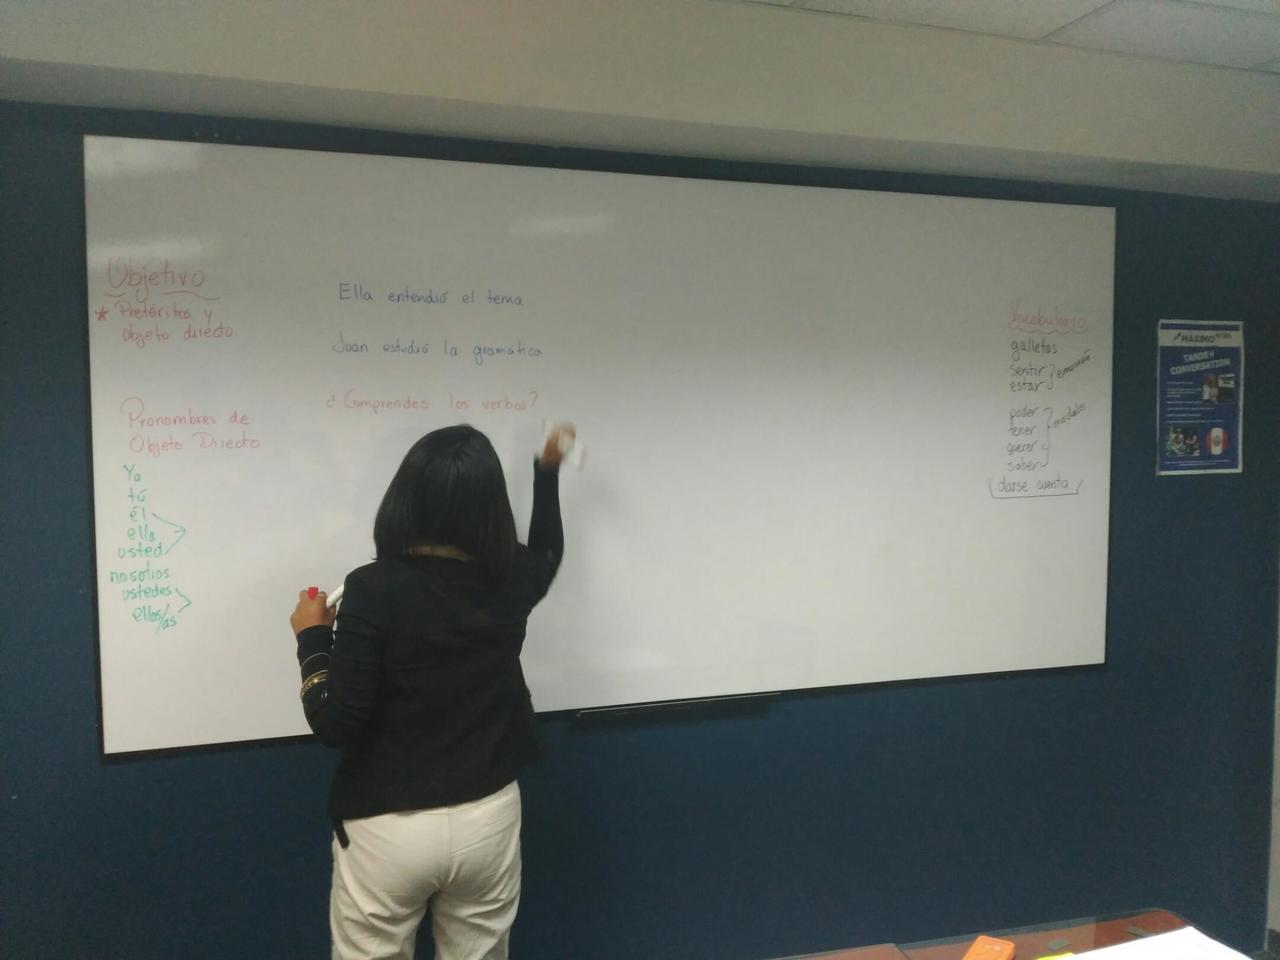 Objetivo
* Pretéritos y
Objeto directo
Pronombres de
Objeto Directo
Yo
tú
él
ella
usted
nosotros
ustedes
ellos/as
Ella entendió el tema
Juan estudió la gramática
¿Comprendes los verbos?
Vocabulario
galletas
sentir
estar
emoción
poder
tener
querer
saber
modales
darse cuenta
MÁXIMO
TANDEM
CONVERSATION